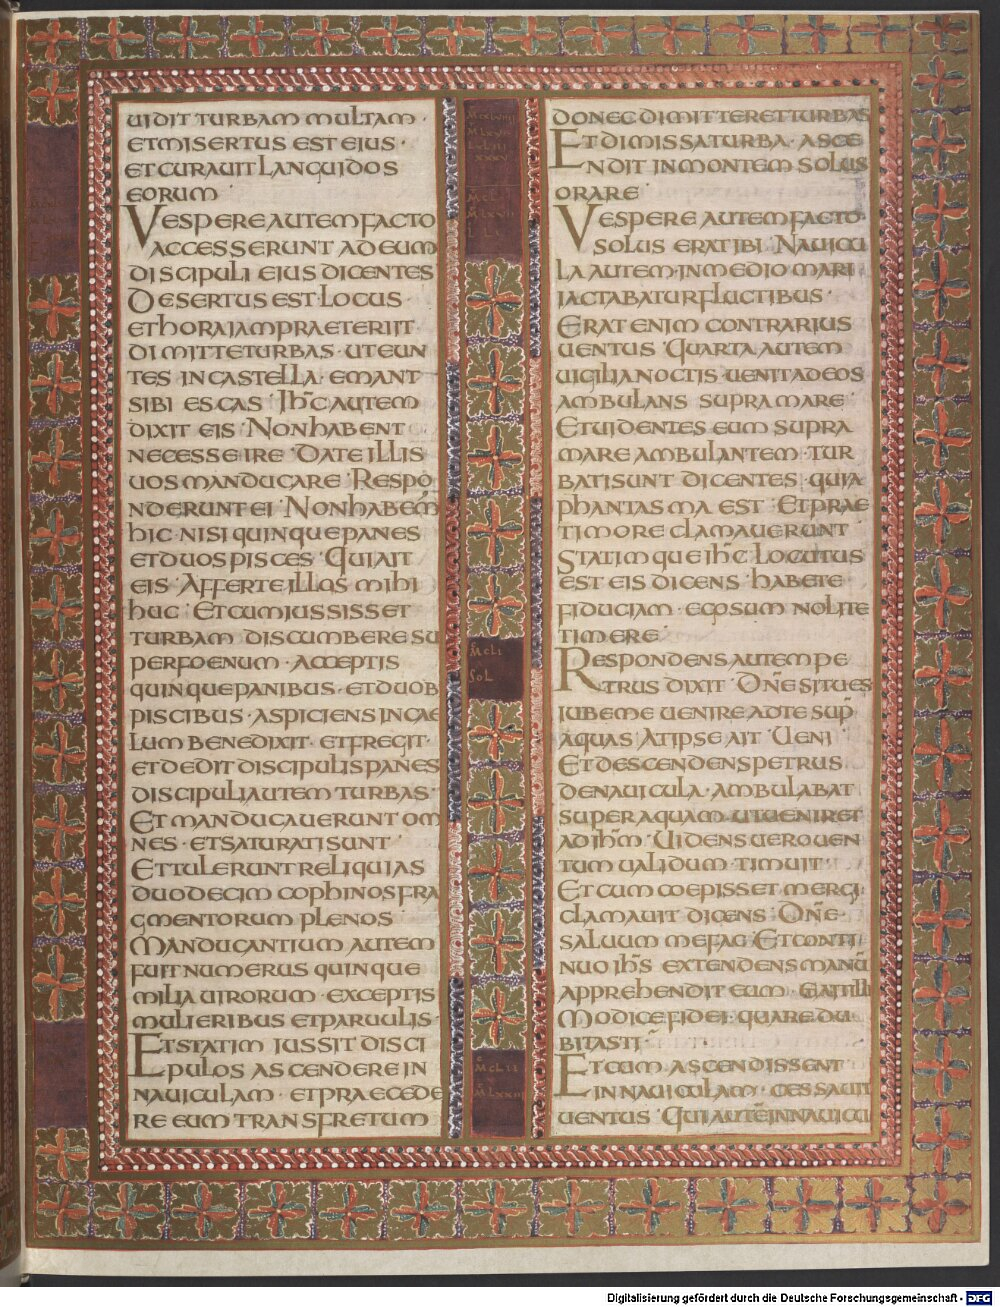 UIDIT TURBAM MULTAM ·
ET MISERTUS EST EIUS ·
ET CURAUIT LANGUIDOS
EORUM ·
VESPERE AUTEM FACTO
ACCESSERUNT AD EUM
DISCIPULI EIUS DICENTES
DESERTUS EST · LOCUS ·
ET HORA IAM PRAETERIIT ·
DIMITTE TURBAS · UT EUN
TES IN CASTELLA · EMANT
SIBI ESCAS · IHC AUTEM
DIXIT EIS · NON HABENT
NECESSE IRE · DATE ILLIS
UOS MANDUCARE · RESPO
NDERUNT EI · NON HABEM
HIC · NISI QUINQUE PANES
ET DUOS PISCES · QUI AIT
EIS · AFFERTE ILLOS MIHI
HUC · ET CUM IUSSISSET
TURBAM DISCUMBERE SU
PER FOENUM · ACCEPTIS
QUINQUE PANIBUS · ET DUOB
PISCIBUS · ASPICIENS IN CAE
LUM BENEDIXIT · ET FREGIT ·
ET DEDIT DISCIPULIS PANES
DISCIPULI AUTEM TURBAS ·
ET MANDUCAUERUNT OM
NES · ET SATURATI SUNT ·
ET TULERUNT RELIQUIAS
DUODECIM COPHINOS FRA
GMENTORUM PLENOS ·
MANDUCANTIUM AUTEM
FUIT NUMERUS QUINQUE
MILIA UIRORUM · EXCEPTIS
MULIERIBUS ET PARUULIS ·
ET STATIM IUSSIT DISCI
PULOS ASCENDERE IN
NAUICULAM · ET PRAECEDE
RE EUM TRANS FRETUM
M CLI
SOL
M CLII
M LXXII
DONEC DIMITTERET TURBAS
ET DIMISSA TURBA · ASCE
NDIT IN MONTEM SOLUS
ORARE ·
VESPERE AUTEM FACTO
SOLUS ERAT IBI · NAUICU
LA AUTEM · IN MEDIO MARI
IACTABATUR FLUCTIBUS ·
ERAT ENIM CONTRARIUS
UENTUS · QUARTA AUTEM
UIGILIA NOCTIS · UENIT AD EOS
AMBULANS SUPRA MARE ·
ET UIDENTES EUM SUPRA
MARE AMBULANTEM · TUR
BATI SUNT DICENTES · QUIA
PHANTASMA EST · ET PRAE
TIMORE CLAMAUERUNT ·
STATIMQUE IHC LOCUTUS
EST EIS DICENS · HABETE
FIDUCIAM · EGO SUM NOLITE
TIMERE ·
RESPONDENS AUTEM PE
TRUS DIXIT · DNE SI TU ES
IUBE ME UENIRE AD TE SUP
AQUAS · AT IPSE AIT · UENI ·
ET DESCENDENS PETRUS
DE NAUICULA · AMBULABAT
SUPER AQUAM · UT UENIRET
AD IHM · UIDENS UERO UEN
TUM UALIDUM · TIMUIT ·
ET CUM COEPISSET MERGI
CLAMAUIT DICENS · DNE
SALUUM ME FAC · ET CONTI
NUO IHS EXTENDENS MANU
APPREHENDIT EUM · ET AIT ILLI
MODICE FIDEI · QUARE DU
BITASTI ·
ET CUM ASCENDISSENT
IN NAUICULAM · CESSAUIT
UENTUS · QUI AUTE IN NAUICU
Digitalisierung gefördert durch die Deutsche Forschungsgemeinschaft - DFG